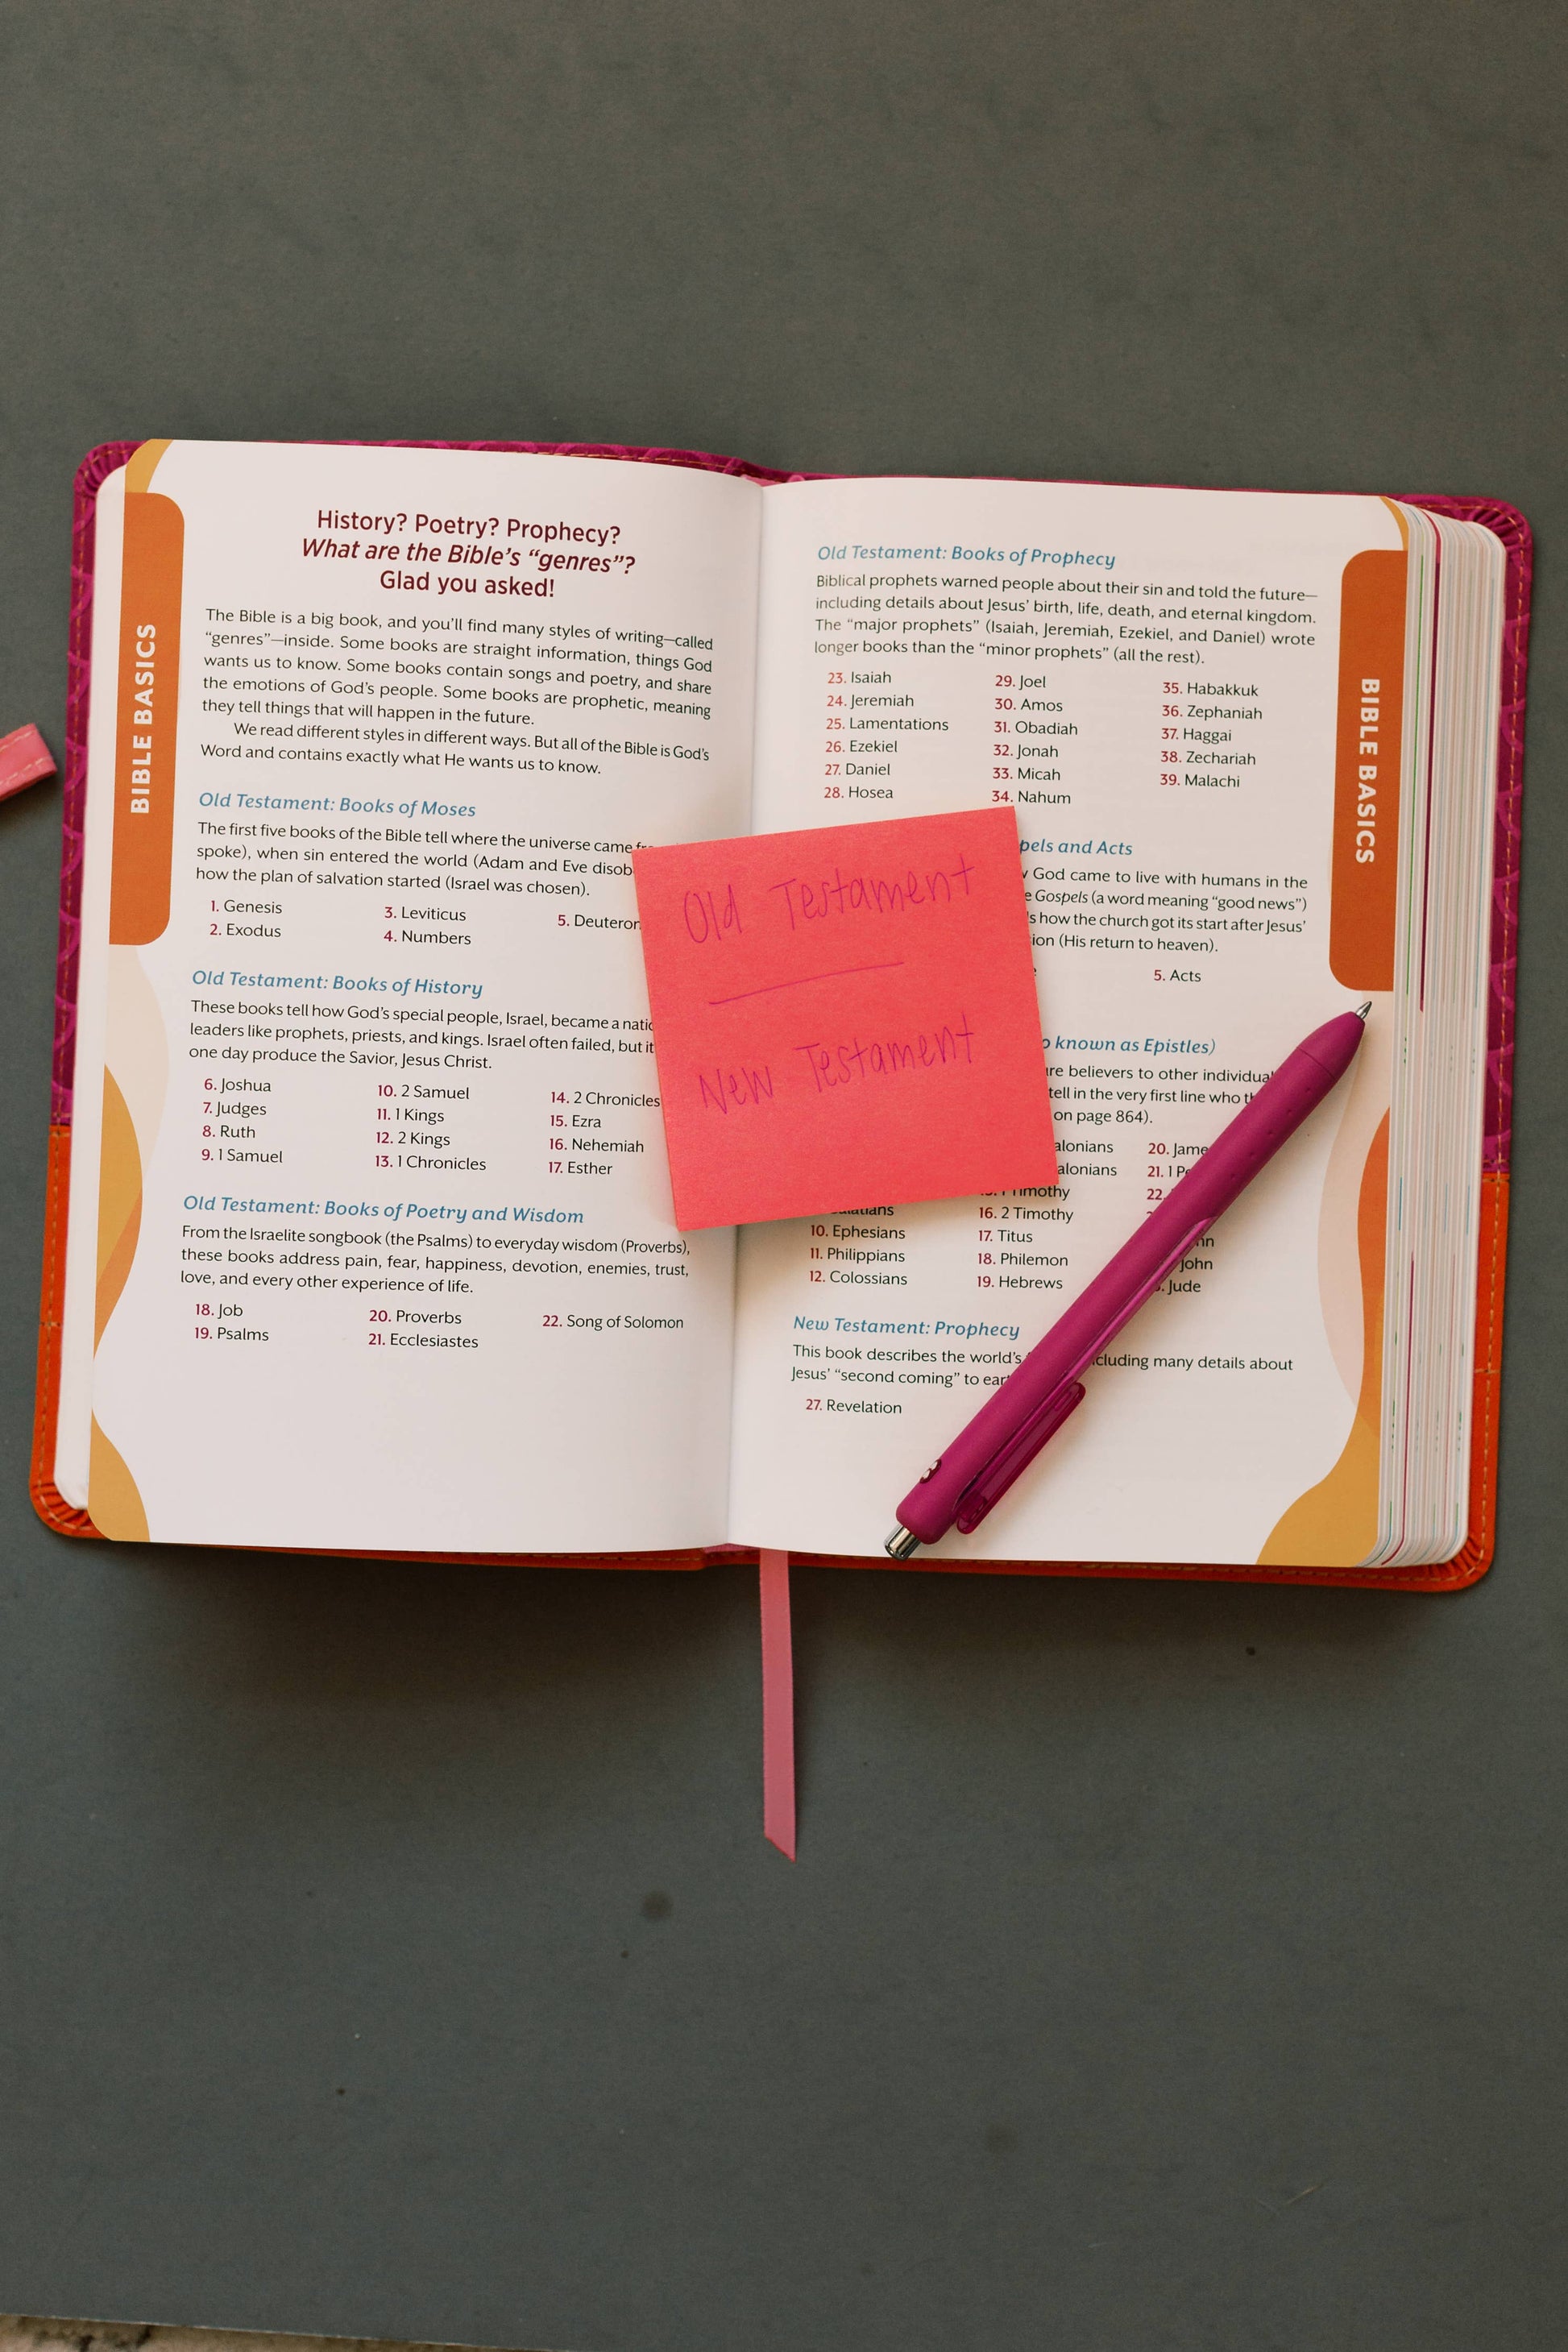 BIBLE BASICS
History? Poetry? Prophecy?
What are the Bible's "genres"?
Glad you asked!
The Bible is a big book, and you'll find many styles of writing—called
"genres"—inside. Some books are straight information, things God
wants us to know. Some books contain songs and poetry, and share
the emotions of God's people. Some books are prophetic, meaning
they tell things that will happen in the future.
We read different styles in different ways. But all of the Bible is God's
Word and contains exactly what He wants us to know.
Old Testament: Books of Moses
The first five books of the Bible tell where the universe came
spoke), when sin entered the world (Adam and Eve
how the plan of salvation started (Israel was chosen).
1. Genesis 3. Leviticus 5.
2. Exodus 4. Numbers
Old Testament: Books of History
These books tell how God's special people, Israel, became a
leaders like prophets, priests, and kings. Israel often failed, but it
one day produce the Savior, Jesus Christ.
6. Joshua 10. 2 Samuel 14. 2 Chronicles
7. Judges 11. 1 Kings 15. Ezra
8. Ruth 12. 2 Kings 16. Nehemiah
9. 1 Samuel 13. 1 Chronicles 17. Esther
Old Testament: Books of Poetry and Wisdom
From the Israelite songbook (the Psalms) to everyday wisdom (Proverbs),
these books address pain, fear, happiness, devotion, enemies, trust,
love, and every other experience of life.
18. Job 20. Proverbs 22. Song of Solomon
19. Psalms 21. Ecclesiastes
Old Testament
New Testament
Old Testament: Books of Prophecy
Biblical prophets warned people about their sin and told the future—
including details about Jesus' birth, life, death, and eternal kingdom.
The "major prophets" (Isaiah, Jeremiah, Ezekiel, and Daniel) wrote
longer books than the "minor prophets" (all the rest).
23. Isaiah 29. Joel 35. Habakkuk
24. Jeremiah 30. Amos 36. Zephaniah
25. Lamentations 31. Obadiah 37. Haggai
26. Ezekiel 32. Jonah 38. Zechariah
27. Daniel 33. Micah 39. Malachi
28. Hosea 34. Nahum
and Acts
God came to live with humans in the
Gospels (a word meaning "good news")
how the church got its start after Jesus'
(His return to heaven).
5. Acts
known as Epistles)
believers to other
tell in the very first line who
on page 864).
20.
21. 1
22.
16. 2 Timothy
10. Ephesians 17. Titus
11. Philippians 18. Philemon John
12. Colossians 19. Hebrews Jude
New Testament: Prophecy
This book describes the world's including many details about
Jesus' "second coming" to
27. Revelation
BIBLE BASICS